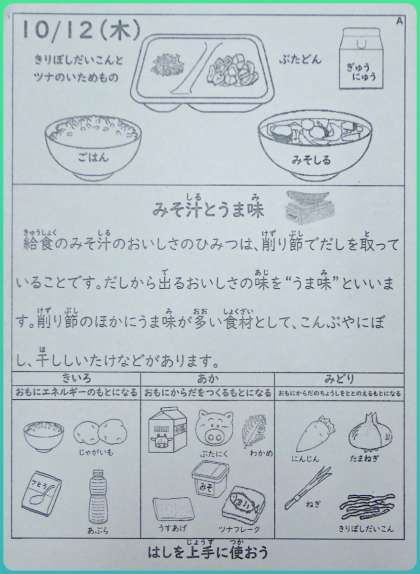 A
10/12(木)
きりぼしだいこんと
ツナのいためもの
ぶたどん
ぎゅう
にゅう
ごはん
みそしる
みそ汁とうま味
しる
み
給食のみそ汁のおいしさのひみつは、削り節でだしを取って
きゅうしょく
しる
けず
ぶし
と
いることです。だしから出るおいしさの味を“うま味”といいま
で
あじ
み
す。削り節のほかにうま味が多い食材として、こんぶやにぼ
けず
ぶし
み
おお
しょくざい
し、干ししいたけなどがあります。
ほ
きいろ
おもにエネルギーのもとになる
あか
おもにからだをつくるもとになる
みどり
おもにからだのちょうしをととのえるもとになる
じゃがいも
さとう
あぶら
ぶたにく
わかめ
みそ
うすあげ
ツナフレーク
にんじん
たまねぎ
ねぎ
きりぼしだいこん
はしを上手に使おう
じょうず
つか